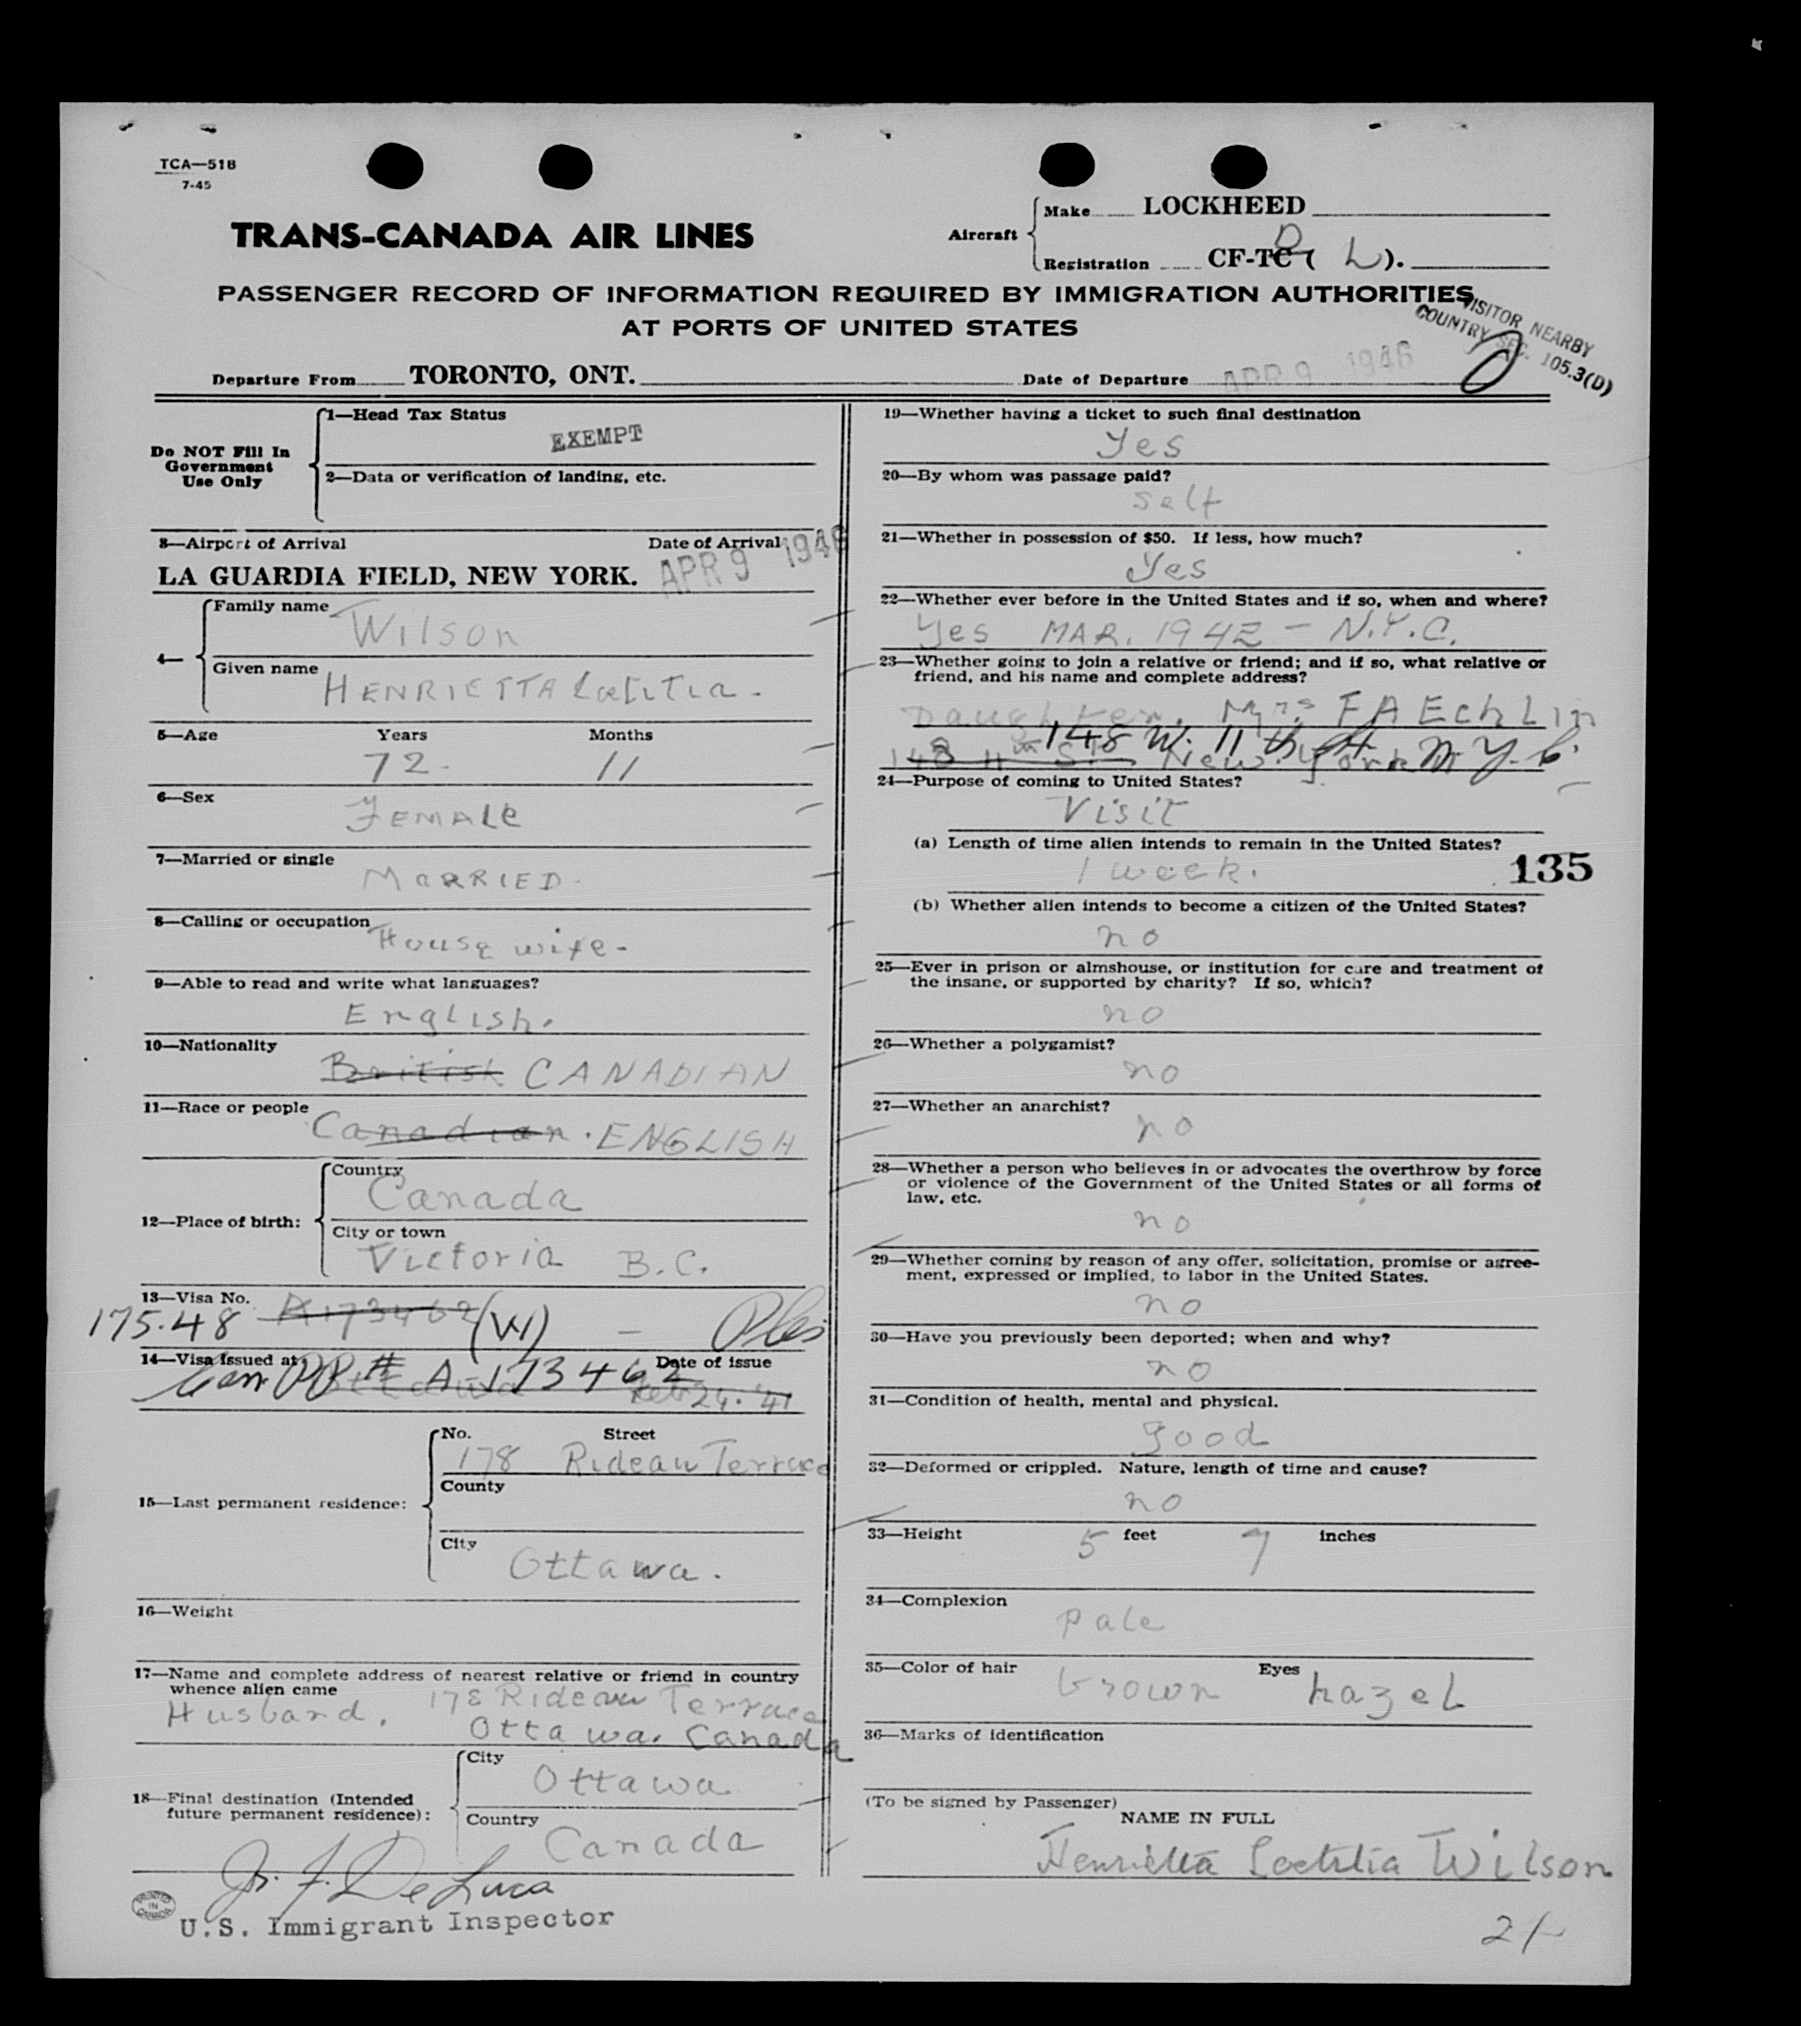 TCA—518
7-45
TRANS-CANADA AIR LINES
Aircraft
Make LOCKHEED
Registration CF-TC D ( L ).
PASSENGER RECORD OF INFORMATION REQUIRED BY IMMIGRATION AUTHORITIES
AT PORTS OF UNITED STATES
VISITOR NEARBY
COUNTRY SEC. 105.3(D)
Departure From TORONTO, ONT. Date of Departure APR 9 1946
Do NOT Fill In
Government
Use Only
1—Head Tax Status
EXEMPT
2—Data or verification of landing, etc.
3—Airport of Arrival Date of Arrival
LA GUARDIA FIELD, NEW YORK. APR 9 1946
4—
Family name
Wilson
Given name
HENRIETTA Laetitia.
5—Age Years Months
72 11
6—Sex
FEMALE
7—Married or single
MARRIED
8—Calling or occupation
Housewife-
9—Able to read and write what languages?
English.
10—Nationality
British CANADIAN
11—Race or people
Canadian. ENGLISH
12—Place of birth:
Country
Canada
City or town
Victoria B.C.
13—Visa No.
175.48 A173462 (W) —
14—Visa issued at Date of issue
Can PP # A 173462
Feb 24. '41
15—Last permanent residence:
No. Street
178 Rideau Terrace
County
City
Ottawa.
16—Weight
17—Name and complete address of nearest relative or friend in country
whence alien came
Husband. 178 Rideau Terrace
Ottawa. Canada
18—Final destination (Intended
future permanent residence):
City
Ottawa
Country
Canada
De Luca
PRINTED IN CANADA
U.S. Immigrant Inspector
19—Whether having a ticket to such final destination
Yes
20—By whom was passage paid?
self
21—Whether in possession of $50. If less, how much?
Yes
22—Whether ever before in the United States and if so, when and where?
Yes MAR. 1942 — N.Y.C.
23—Whether going to join a relative or friend; and if so, what relative or
friend, and his name and complete address?
Daughter. Mrs FA Echlin
148 W. 11th St N.Y.C.
148 11th St. New York
24—Purpose of coming to United States?
Visit
(a) Length of time alien intends to remain in the United States?
1 week.
135
(b) Whether alien intends to become a citizen of the United States?
no
25—Ever in prison or almshouse, or institution for care and treatment of
the insane, or supported by charity? If so, which?
no
26—Whether a polygamist?
no
27—Whether an anarchist?
no
28—Whether a person who believes in or advocates the overthrow by force
or violence of the Government of the United States or all forms of
law, etc.
no
29—Whether coming by reason of any offer, solicitation, promise or agree-
ment, expressed or implied, to labor in the United States.
no
30—Have you previously been deported; when and why?
no
31—Condition of health, mental and physical.
good
32—Deformed or crippled. Nature, length of time and cause?
no
33—Height 5 feet 7 inches
34—Complexion
pale
35—Color of hair brown Eyes hazel
36—Marks of identification
(To be signed by Passenger)
NAME IN FULL
Henrietta Laetitia Wilson